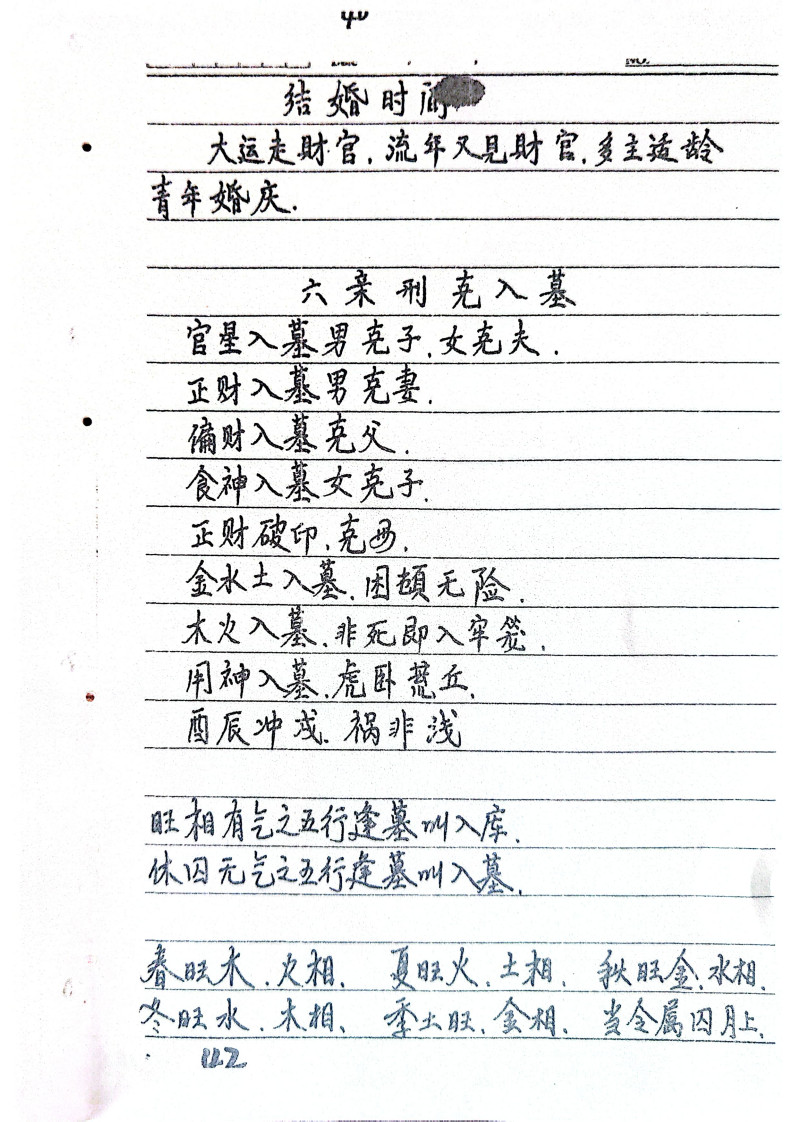 40
NO.
结婚时间
大运走财官,流年又见财官,多主适龄
青年婚庆.
六亲刑克入墓
官星入墓男克子,女克夫.
正财入墓男克妻.
偏财入墓克父.
食神入墓女克子.
正财破印,克母.
金水土入墓,困顿无险.
木火入墓,非死即入牢笼.
用神入墓,虎卧荒丘.
酉辰冲戌,祸非浅
旺相有气之五行逢墓叫入库.
休囚无气之五行逢墓叫入墓.
春旺木、火相、 夏旺火、土相、 秋旺金、水相、
冬旺水、木相、 季土旺、金相、 当令属囚月上、
42